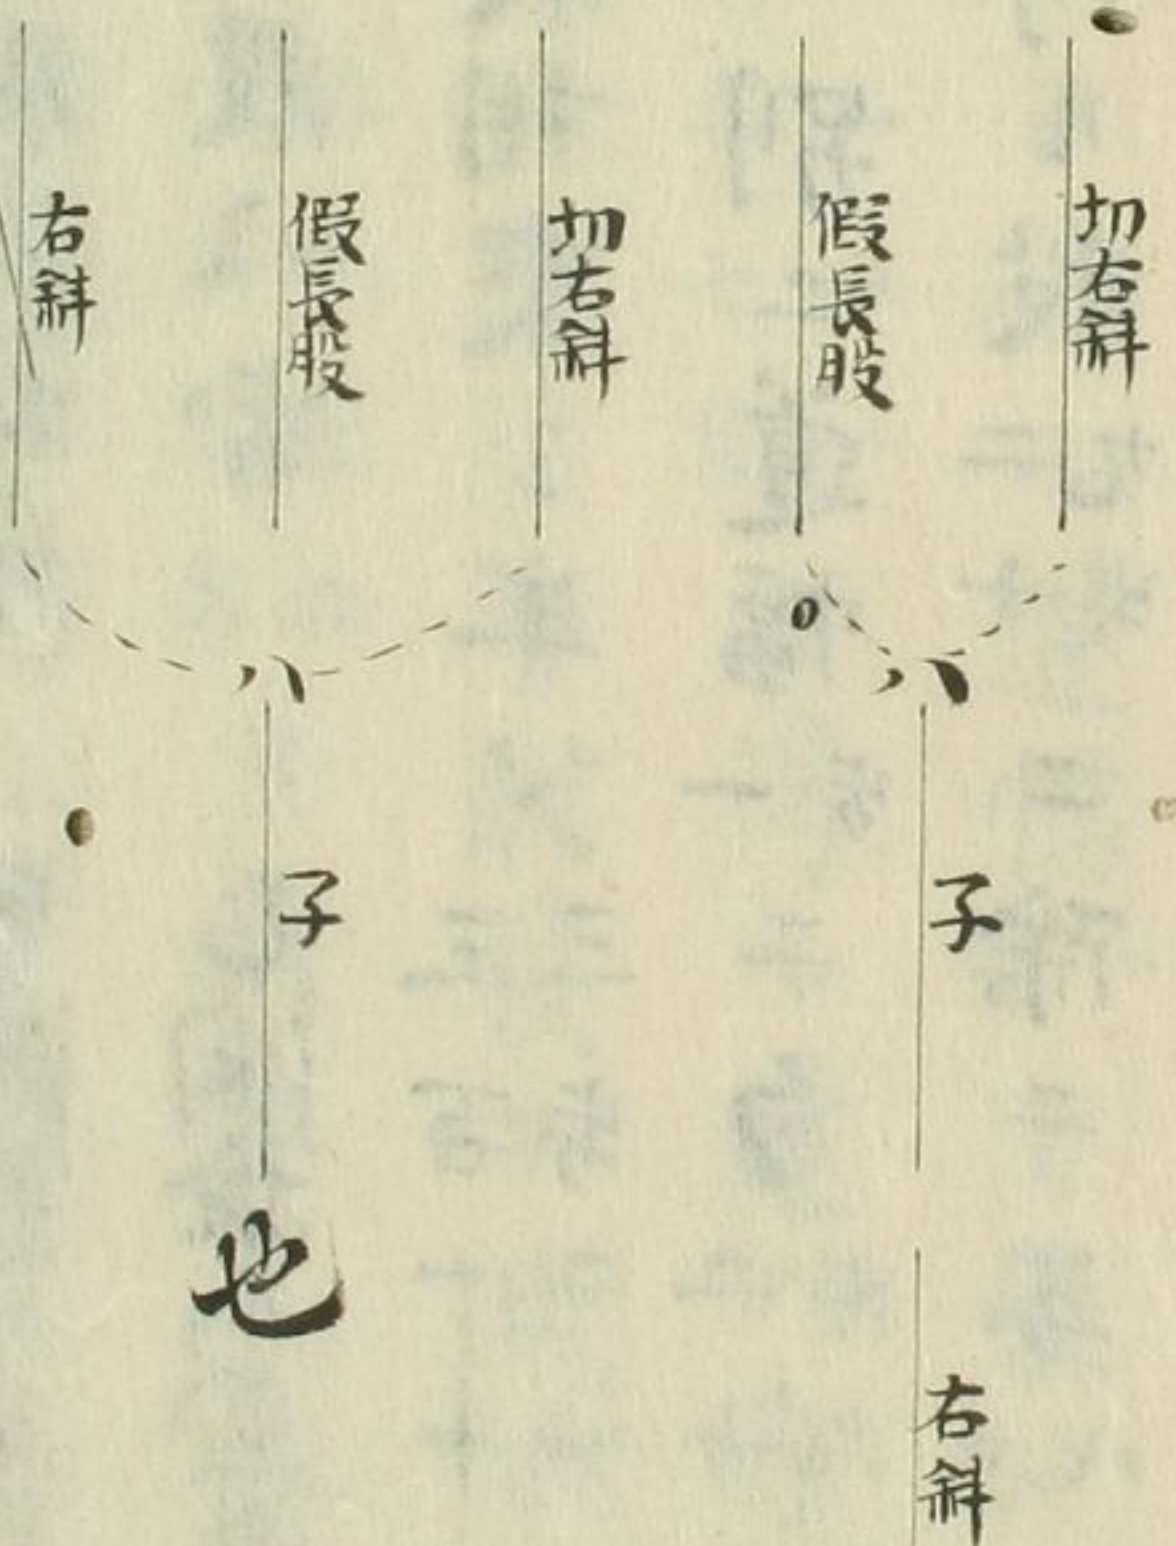 切右斜
假長股
ハ
子
右斜
切右斜
假長股
右斜
ハ
子
也